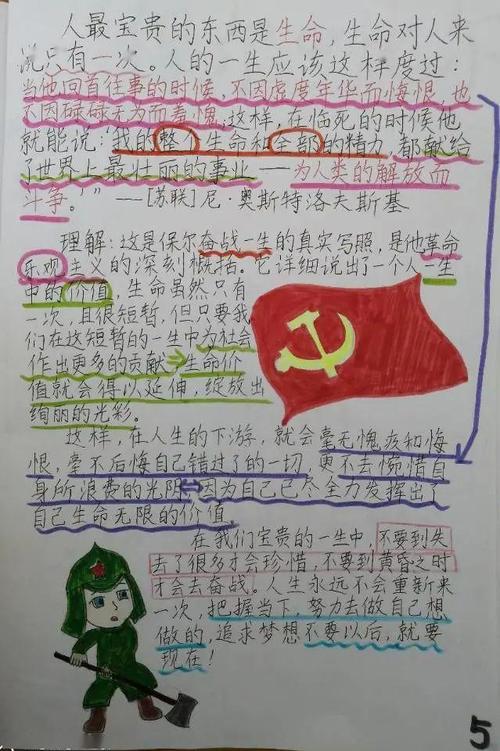 人最宝贵的东西是生命，生命对人来
说只有一次。人的一生应该这样度过：
当他回首往事的时候，不因虚度年华而悔恨，也
不因碌碌无为而羞愧；这样，在临死的时候他
就能说：“我的整个生命和全部的精力，都献给
了世界上最壮丽的事业——为人类的解放而
斗争。”——[苏联]尼·奥斯特洛夫斯基
理解：这是保尔奋战一生的真实写照，是他革命
乐观主义的深刻概括。它详细说出了一个人一生
中的价值，生命虽然只有
一次，且很短暂，但只要我
们在这短暂的一生中为社会
作出更多的贡献⇒生命价
值就会得以延伸，绽放出
绚丽的光彩。
这样，在人生的下游，就会毫无愧疚和悔
恨，毫不后悔自己错过了的一切，更不去惋惜自
身所浪费的光阴⇔因为自己已尽全力发挥出了
自己生命无限的价值
在我们宝贵的一生中，不要到失
去了很多才会珍惜，不要到黄昏之时
才会去奋战。人生永远不会重新来
一次，把握当下，努力去做自己想
做的，追求梦想不要以后，就要
现在！
5